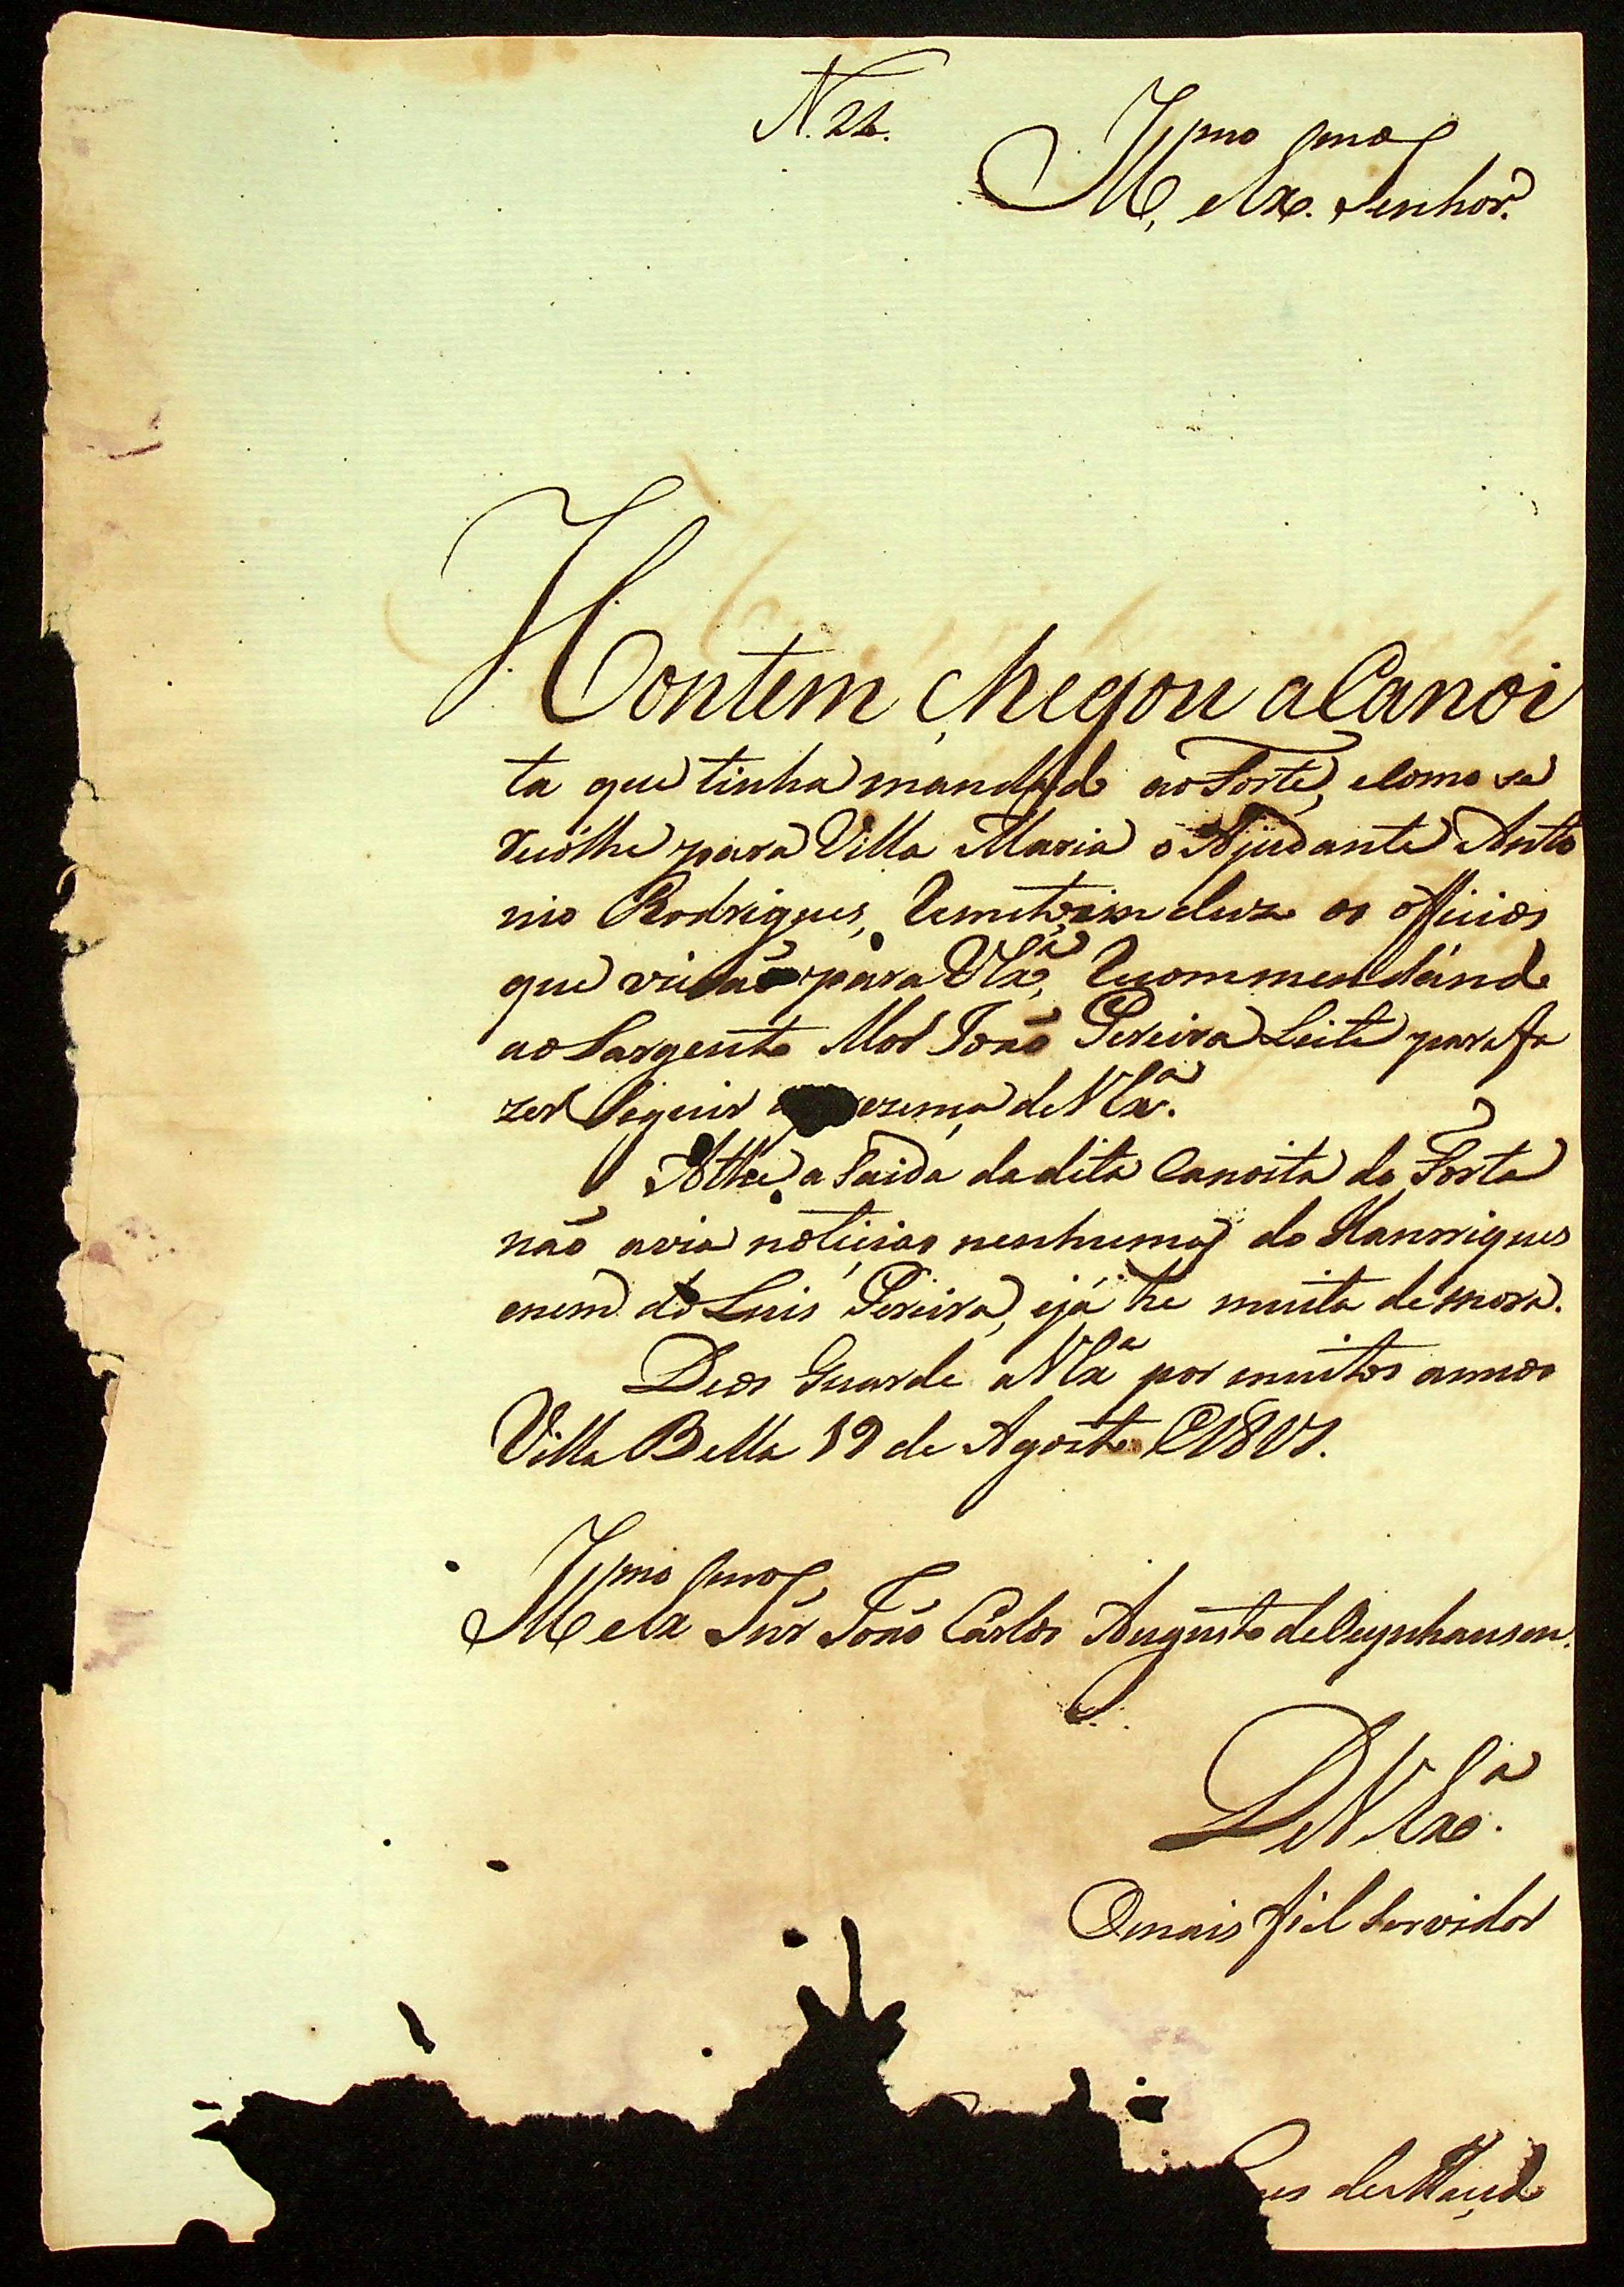 N. 22.
Ill.mo e Ex.mo Senhor.
Hontem chegou a Canoi
ta que tinha mandado ao Forte, e como se
recólhe para Villa Maria o Ajudante Anto
nio Rodrigues, os officios
que vierão para V Ex.a, recommendándo
ao Sargento Mor João Pereira Leite para fa
zer seguir a prezença de V Ex.a
Athe a saida da dita Canoita do Forte
não avia noticias nenhumas do Manrriques
e nem do Luis Pereira, e já he muita demora.
Deos Guarde a V Ex.a por muitos annos
Villa Bella 19 de Agosto
Ill.mo e Ex.mo Snr João Carlos Augusto de Oeynhausen.
De V Ex.a
O mais fiel servidor
ues de